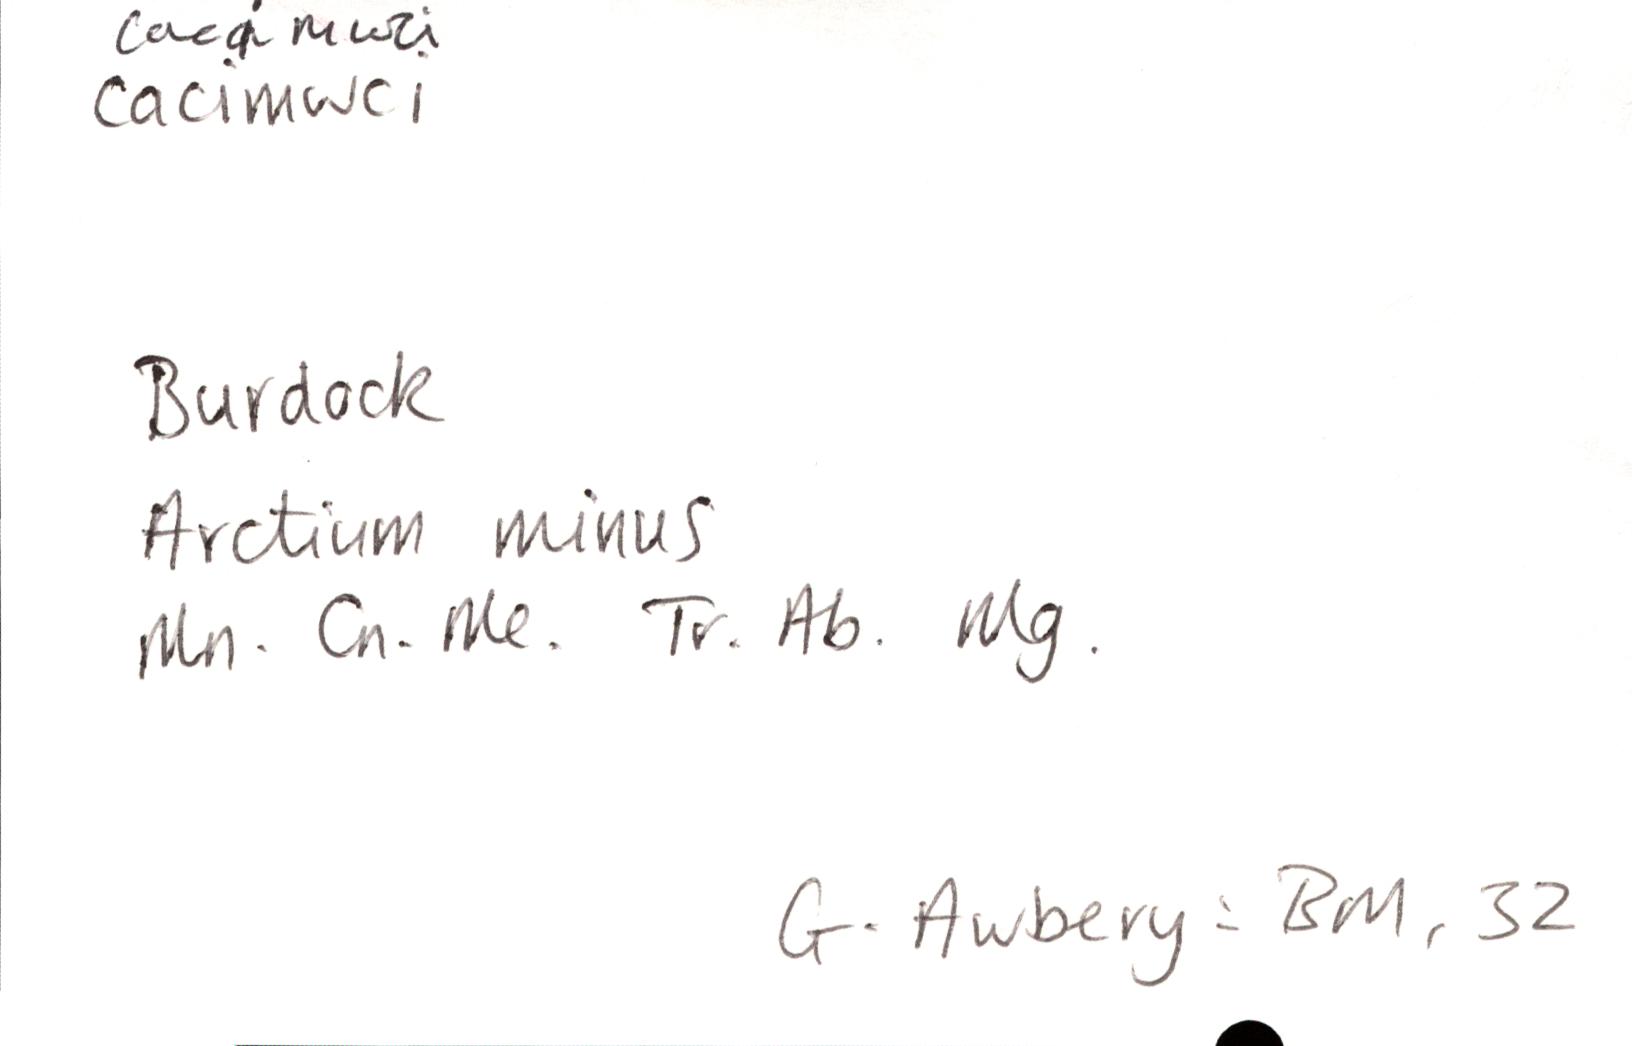 cacimwci
cacimwci
Burdock
Arctium minus
Mn. Cn. Me. Tr. Ab. Mg.
G. Awbery: BM, 32